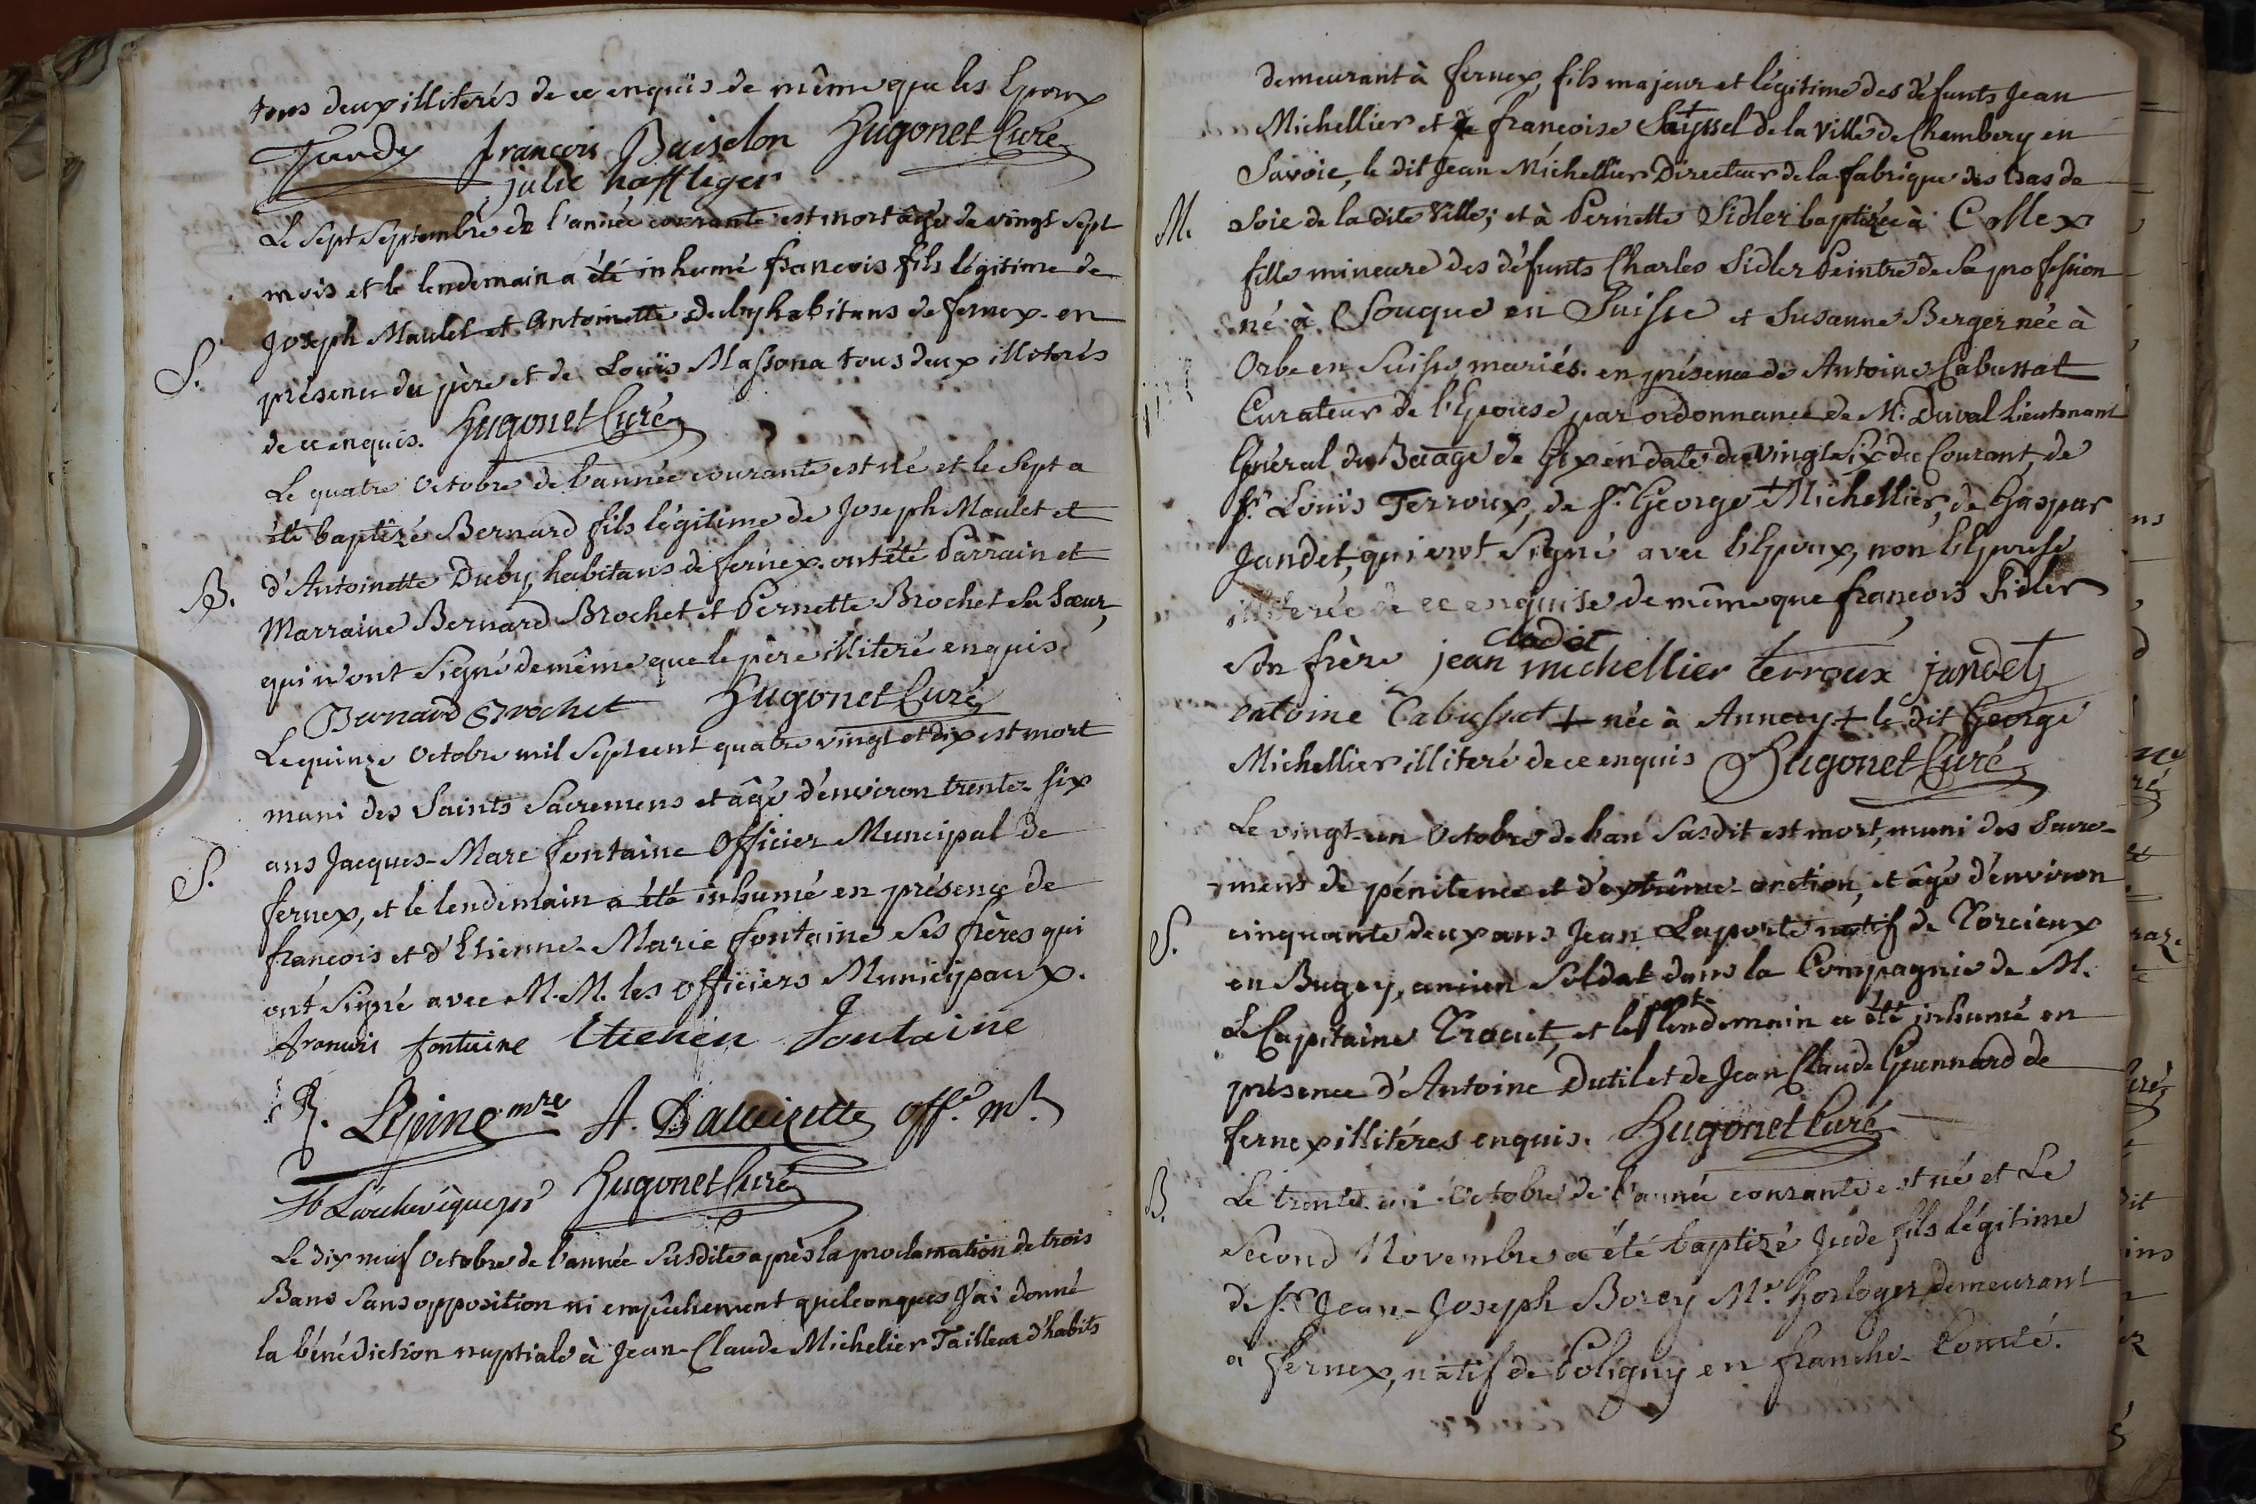 tous deux illiterés de ce enquis de même que les Epoux
Tardy françois Baiselon Hugonet Curé
julie haffliger
Le sept septembre de l'année courante est mort âgé de vingt sept
mois et le lendemain a été inhumé francois fils légitime de
Joseph Maulet et Antoinette Duby habitans de fernex. en
S.
présence du père et de Louïs Massona tous deux illiterés
de ce enquis. Hugonet Curé
Le quatre Octobre de l'année courante est né et le sept a
été baptizé Bernard fils légitime de Joseph Maulet et
B.
d'Antoinette Duby habitans de fernex. ont été Parrain et
Marraine Bernard Brochet et Pernette Brochet sa sœur,
qui n'ont signé de même que le père illiteré enquis
Bernard Brochet Hugonet Curé
Le quinze Octobre mil sept cent quatre vingt et dix est mort
muni des Saints Sacremens et âgé d'environ trente-six
ans Jacques-Marc fontaine Officier Muncipal de
S.
fernex, et le lendemain a été inhumé en présence de
francois et d'Etienne-Marie fontaine ses frères qui
ont signé avec M.M. les officiers Municipaux.
francois fontaine Etienen fontaine
Lépine mre A. Dalleizette off. ml.
Hugonet Curé
Le dix neuf Octobre de l'année susdite après la proclamation de trois
Bans sans opposition ni empêchement quelconques J'ai donné
la bénédiction nuptiale à Jean-Claude Michelier Tailleur d'habits
demeurant à fernex, fils majeur et légitime des défunts Jean
Michellier et françoise Sayssel de la Ville de Chambery en
Savoie, le dit Jean Michellier Directeur de la fabrique des bas de
M.
soie de la dite Ville; et à Pernette Sidler baptizée à Collex
fille mineure des défunts Charles Sidler Peintre de sa profession
né à Souque en Suisse et Susanne Berger née à
Orbe en Suisse mariés. en présence de Antoine Cabussat
Curateur de l'Epouse par ordonnance de M. Duval Lieutenant
Général du Baiage de Gex en date du vingt six du Courant, de
Sr. Louïs Terroux, de Sr. George + Michellier, de Gaspar
Jandet, qui ont signé avec l'Epoux, non l'Epouse
illiterée de ce enquise de même que françois Sidler
son frère jean clodit michellier terroux jandet
antoine Cabussat + née à Annecy + le dit George
Michellier illiteré de ce enquis Hugonet Curé
Le vingt-un Octobre de l'an susdit est mort, muni des Sacre-
mens de pénitence et d'extrême-onction, et âgé d'environ
S.
cinquante deux ans Jean Laporte natif de Torcieux
en Bugey, ancien Soldat dans la Compagnie de M.
Le Capitaine Trocut, et le sept lendemain a été inhumé en
présence d'Antoine Dutil et de Jean Claude Guennard de
fernex illitéres enquis. Hugonet Curé
B.
Le trente un Octobre de l'année courante est né et Le
Second Novembre a été baptizé Jude fils légitime
de Sr. Jean-Joseph Borey Mr. horloger demeurant
à fernex, natif de Poligny en franche-Comté.